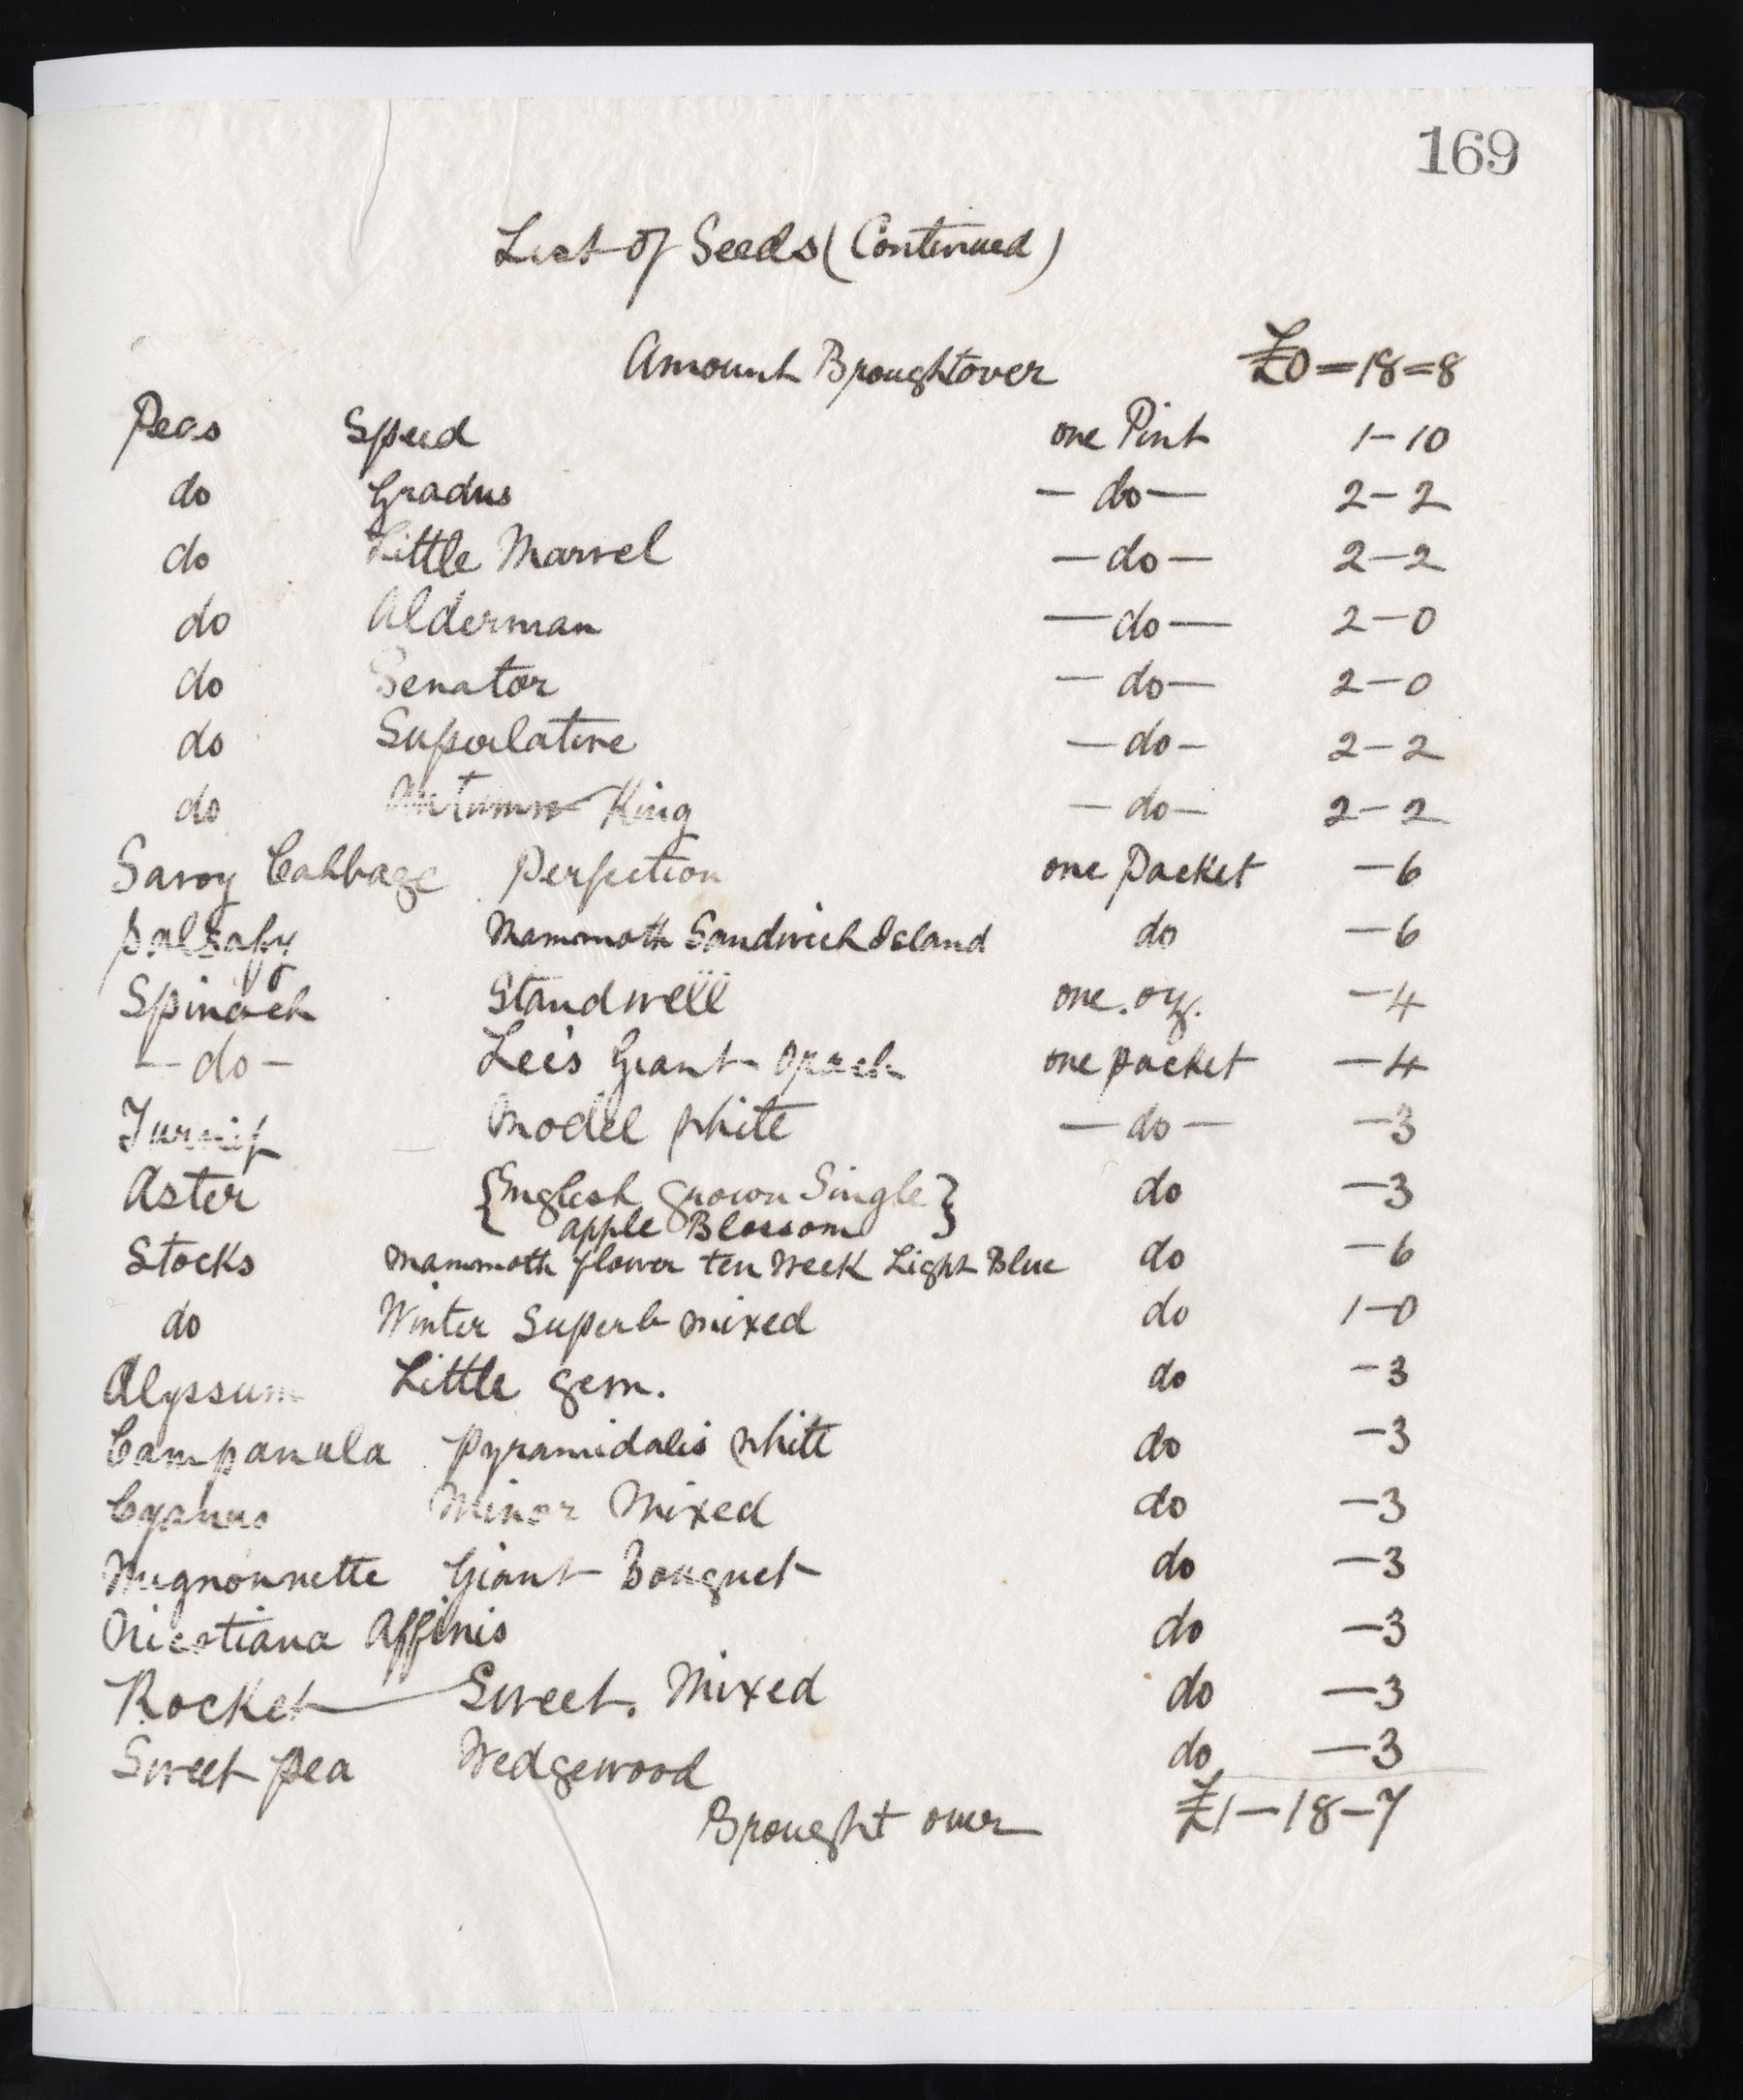 169
List of Seeds (Continued)
Amount Broughtover £0=18=8
Peas Speed one Pint 1-10
do Gradus - do - 2-2
do Little Marvel - do - 2-2
do Alderman - do - 2-0
do Senator - do - 2-0
do Superlative - do - 2-2
do Autumn King - do - 2-2
Savoy Cabbage Perfection one Packet -6
Salsafy Mammoth Sandwich Island do -6
Spinach Standwell one oz. -4
- do - Lee's Giant Orach one packet -4
Turnip Model White - do - -3
Aster {English grown Single} do -3
apple Blossom
Stocks Mammoth flower ten Week Light Blue do -6
do Winter Superb mixed do 1-0
Alyssum Little gem. do -3
Campanula Pyramidalis White do -3
Cyanus Minor Mixed do -3
Mignonnette Giant Bouquet do -3
Nicotiana Affinis do -3
Rocket Sweet. Mixed do -3
Sweet pea Wedgewood do -3
Brought over £1-18-7